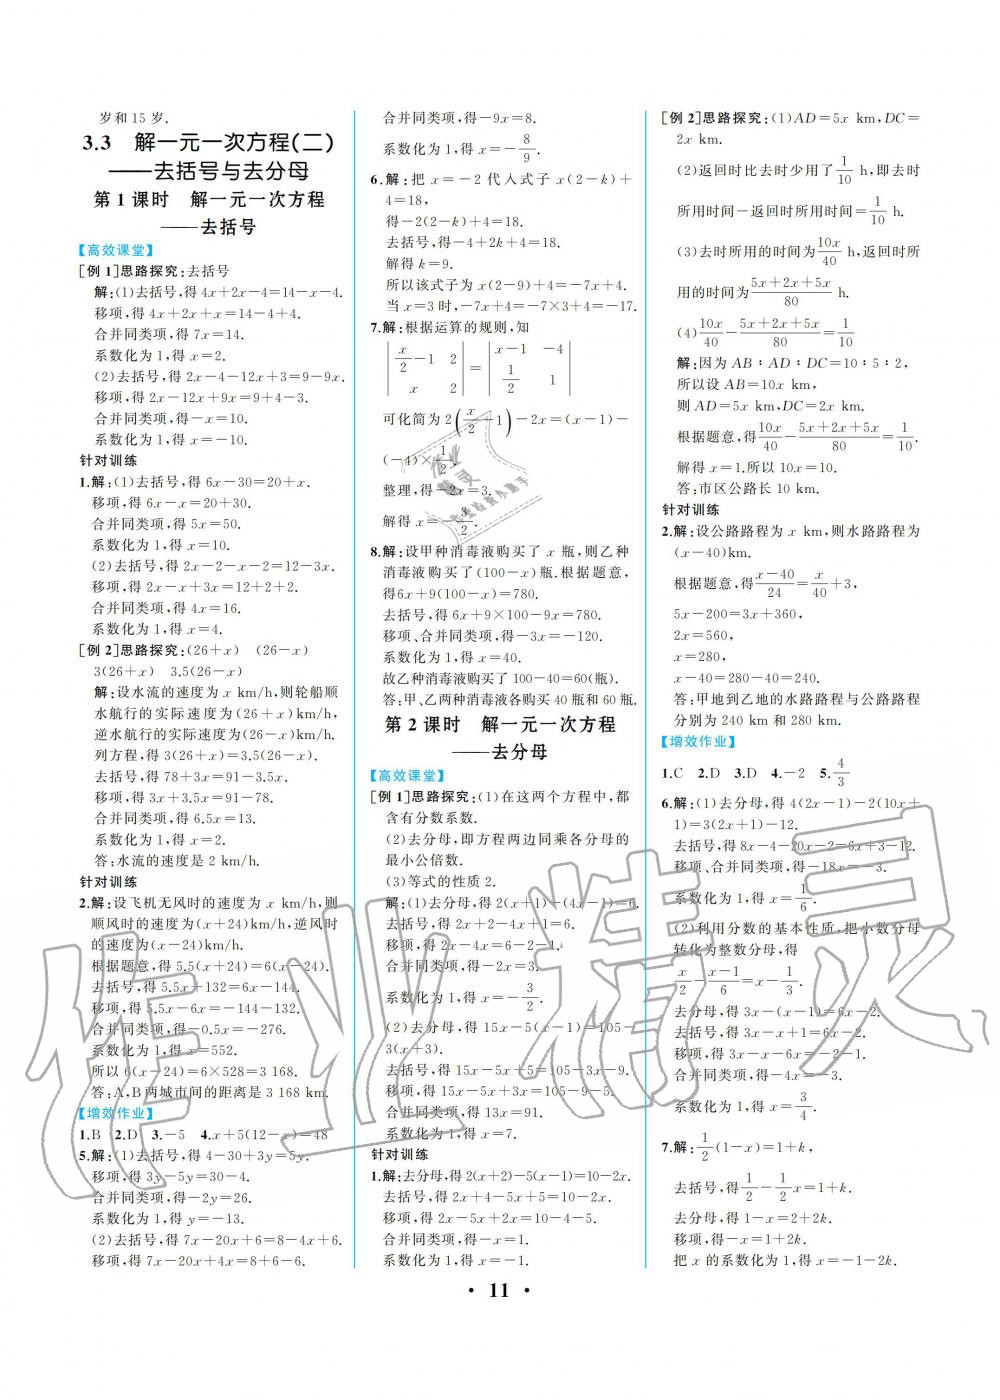 岁和 15 岁.
3.3　解一元一次方程(二)
——去括号与去分母
第 1 课时　解一元一次方程
——去括号
【高效课堂】
[例 1]思路探究:去括号
解:(1)去括号,得 4x+2x-4=14-x-4.
移项,得 4x+2x+x=14-4+4.
合并同类项,得 7x=14.
系数化为 1,得 x=2.
(2)去括号,得 2x-4-12x+3=9-9x.
移项,得 2x-12x+9x=9+4-3.
合并同类项,得-x=10.
系数化为 1,得 x=-10.
针对训练
1.解:(1)去括号,得 6x-30=20+x.
移项,得 6x-x=20+30.
合并同类项,得 5x=50.
系数化为 1,得 x=10.
(2)去括号,得 2x-2-x-2=12-3x.
移项,得 2x-x+3x=12+2+2.
合并同类项,得 4x=16.
系数化为 1,得 x=4.
[例 2]思路探究:(26+x)　(26-x)
3(26+x)　3.5(26-x)
解:设水流的速度为 x km/h,则轮船顺
水航行的实际速度为(26+x)km/h,
逆水航行的实际速度为(26-x)km/h.
列方程,得 3(26+x)=3.5(26-x).
去括号,得 78+3x=91-3.5x.
移项,得 3x+3.5x=91-78.
合并同类项,得 6.5x=13.
系数化为 1,得 x=2.
答:水流的速度是 2 km/h.
针对训练
2.解:设飞机无风时的速度为 x km/h,则
顺风时的速度为(x+24)km/h,逆风时
的速度为(x-24)km/h.
根据题意,得 5.5(x+24)=6(x-24).
去括号,得 5.5x+132=6x-144.
移项,得 5.5x-6x=-144-132.
合并同类项,得-0.5x=-276.
系数化为 1,得 x=552.
所以 6(x-24)=6×528=3 168.
答:A,B两城市间的距离是 3 168 km.
【增效作业】
1.B　2.D　3.-5　4.x+5(12-x)=48
5.解:(1)去括号,得 4-30+3y=5y.
移项,得 3y-5y=30-4.
合并同类项,得-2y=26.
系数化为 1,得 y=-13.
(2)去括号,得 7x-20x+6=8-4x+6.
移项,得 7x-20x+4x=8+6-6.
合并同类项,得-9x=8.
系数化为 1,得 x=-8/9.
6.解:把 x=-2 代入式子 x(2-k)+
4=18,
得-2(2-k)+4=18.
去括号,得-4+2k+4=18.
解得 k=9.
所以该式子为 x(2-9)+4=-7x+4.
当 x=3 时,-7x+4=-7×3+4=-17.
7.解:根据运算的规则,知
|x/2-1　2|=|x-1　-4|
|x　2|　|1/2　1|
可化简为 2(x/2-1)-2x=(x-1)-
(-4)×1/2.
整理,得-2x=3.
解得 x=-3/2.
8.解:设甲种消毒液购买了 x 瓶,则乙种
消毒液购买了(100-x)瓶.根据题意,
得6x+9(100-x)=780.
去括号,得 6x+9×100-9x=780.
移项、合并同类项,得-3x=-120.
系数化为 1,得 x=40.
故乙种消毒液购买了 100-40=60(瓶).
答:甲、乙两种消毒液各购买 40 瓶和 60 瓶.
第 2 课时　解一元一次方程
——去分母
【高效课堂】
[例 1]思路探究:(1)在这两个方程中,都
含有分数系数.
(2)去分母,即方程两边同乘各分母的
最小公倍数.
(3)等式的性质 2.
解:(1)去分母,得 2(x+1)-(4x-1)=6.
去括号,得 2x+2-4x+1=6.
移项,得 2x-4x=6-2-1.
合并同类项,得-2x=3.
系数化为 1,得 x=-3/2.
(2)去分母,得 15x-5(x-1)=105-
3(x+3).
去括号,得 15x-5x+5=105-3x-9.
移项,得 15x-5x+3x=105-9-5.
合并同类项,得 13x=91.
系数化为 1,得 x=7.
针对训练
1.解:去分母,得 2(x+2)-5(x-1)=10-2x.
去括号,得 2x+4-5x+5=10-2x.
移项,得 2x-5x+2x=10-4-5.
合并同类项,得-x=1.
系数化为 1,得 x=-1.
[例 2]思路探究:(1)AD=5x km,DC=
2x km.
(2)返回时比去时少用了1/10 h,即去时
所用时间-返回时所用时间=1/10 h.
(3)去时所用的时间为10x/40 h,返回时所
用的时间为5x+2x+5x/80 h.
(4)10x/40-5x+2x+5x/80=1/10
解:因为 AB∶AD∶DC=10∶5∶2,
所以设 AB=10x km,
则 AD=5x km,DC=2x km.
根据题意,得10x/40-5x+2x+5x/80=1/10.
解得 x=1.所以 10x=10.
答:市区公路长 10 km.
针对训练
2.解:设公路路程为 x km,则水路路程为
(x-40)km.
根据题意,得x-40/24=x/40+3,
5x-200=3x+360,
2x=560,
x=280,
x-40=280-40=240.
答:甲地到乙地的水路路程与公路路程
分别为 240 km 和 280 km.
【增效作业】
1.C　2.D　3.D　4.-2　5.4/3
6.解:(1)去分母,得 4(2x-1)-2(10x+
1)=3(2x+1)-12.
去括号,得 8x-4-20x-2=6x+3-12.
移项、合并同类项,得-18x=-3.
系数化为 1,得 x=1/6.
(2)利用分数的基本性质,把小数分母
转化为整数分母,得
x/2-x-1/6=x-1/3.
去分母,得 3x-(x-1)=6x-2.
去括号,得 3x-x+1=6x-2.
移项,得 3x-x-6x=-2-1.
合并同类项,得-4x=-3.
系数化为 1,得 x=3/4.
7.解:1/2(1-x)=1+k,
去括号,得1/2-1/2x=1+k.
去分母,得 1-x=2+2k.
移项,得-x=1+2k.
把 x 的系数化为 1,得 x=-1-2k.
• 11 •
作业精灵